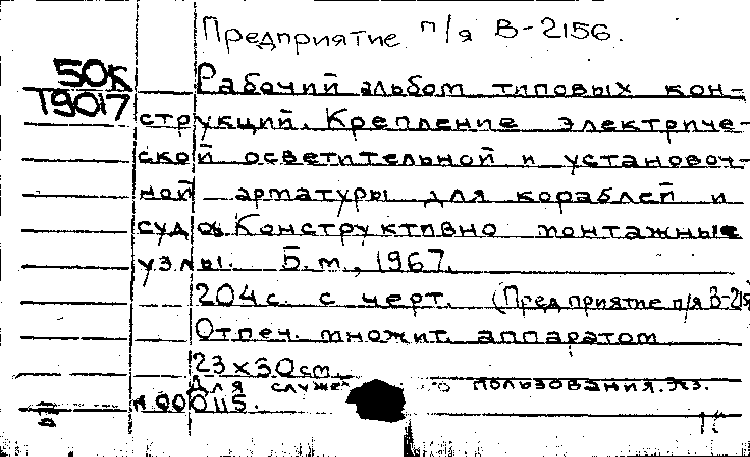 Предприятие п/я В-2156.
50К
Т9017
Рабочий альбом типовых кон-
струкций. Крепление электриче-
ской осветительной и установоч-
ной арматуры для кораблей и
судов. Конструктивно монтажные
узлы. Б.м., 1967.
204с. с черт. (Предприятие п/я В-215
Отпеч. множит. аппаратом
23х30см.
Для служе го пользования. Экз.
№000115.